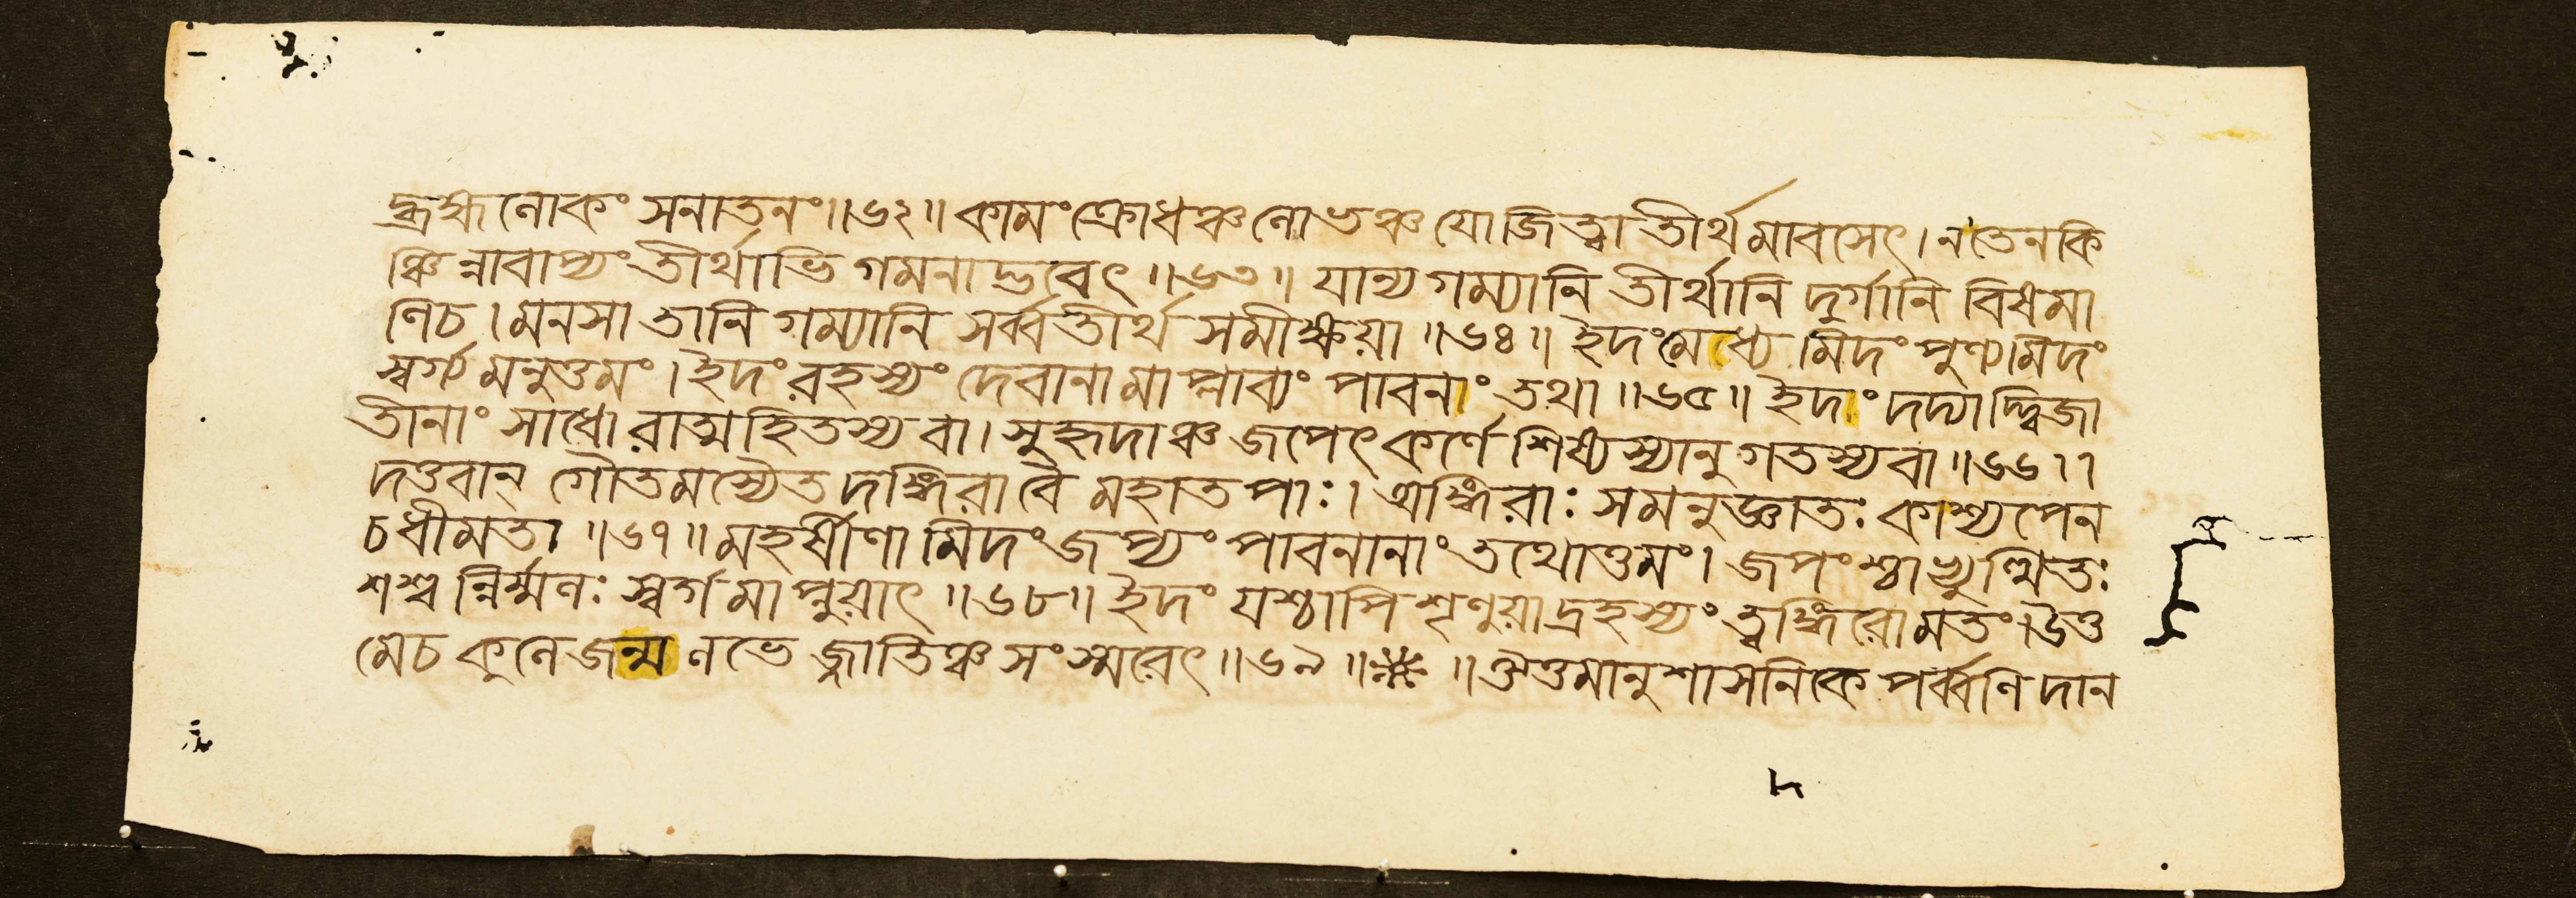 দ্ব্রহ্মলোকং সনাতনং॥৬২॥ কামংক্রোধঞ্চলোভঞ্চযোজিত্বাতীর্থমাবসেৎ।নতেনকি
ঞ্চিন্নাবাপ্যংতীর্থাভিগমনাদ্ভবেৎ॥৬৩॥ যান্যগম্যানিতীর্থানিদুর্গানিবিষমা
ণিচ।মনসাতানিগম্যানিসর্ব্বতীর্থসমীক্ষয়া॥৬৪॥ ইদংমেধ্যমিদংপুণ্যমিদং
স্বর্গ্যমনুত্তমং।ইদংরহস্যংদেবানামাপ্লাব্যংপাবনাংতথা॥৬৫॥ ইদাংদদ্যাদ্দ্বিজা
তীনাংসাধোরাত্মহিতস্যবা।সুহৃদাঞ্চজপেৎকর্ণেশিষ্যস্যানুগতস্যবা॥৬৬॥
দত্তবান্গৌতমস্যৈতদঙ্গিরাবৈমহাতপাঃ।অঙ্গিরাঃসমনুজ্ঞাতঃকাশ্যপেন
চধীমতা॥৬৭॥ মহর্ষীণামিদংজপ্যংপাবনানাংতথোত্তমং।জপংশ্চাভ্যুত্থিতঃ
শশ্বন্নির্ম্মলঃস্বর্গমাপ্নুয়াৎ॥৬৮॥ ইদংযশ্চাপিশৃণুয়াদ্রহস্যংত্বঙ্গিরোমতং।উত্ত
মেচকুলেজন্মলভেজ্জাতিঞ্চসংস্মরেৎ॥৬৯॥ ※ ॥ঔত্তমানুশাসনিকেপর্ব্বণিদান